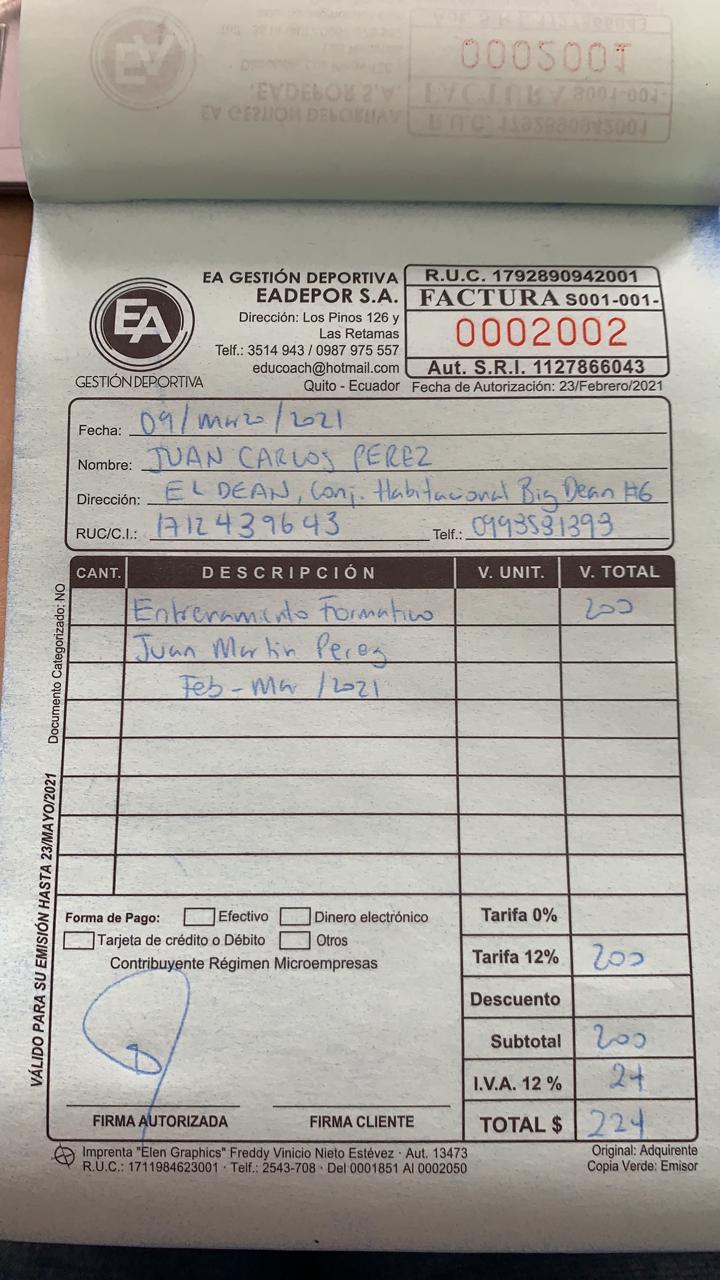 Aut. S.R.I. 1127866043
0002001
FACTURA S001-001-
R.U.C. 1792890942001
EADEPOR S.A.
EA GESTIÓN DEPORTIVA
EA
GESTIÓN DEPORTIVA
EA GESTIÓN DEPORTIVA
EADEPOR S.A.
Dirección: Los Pinos 126 y
Las Retamas
Telf.: 3514 943 / 0987 975 557
educoach@hotmail.com
Quito - Ecuador
R.U.C. 1792890942001
FACTURA S001-001-
0002002
Aut. S.R.I. 1127866043
Fecha de Autorización: 23/Febrero/2021
Fecha: 09/marzo/2021
Nombre: JUAN CARLOS PEREZ
Dirección: EL DEAN, Conj. Habitacional Big Dean #6
RUC/C.I.: 1712439643 Telf.: 0993531393
CANT. DESCRIPCIÓN V. UNIT. V. TOTAL
Entrenamiento Formativo 200
Juan Martin Perez
Feb - Mar /2021
Documento Categorizado: NO
VÁLIDO PARA SU EMISIÓN HASTA 23/MAYO/2021
Forma de Pago: Efectivo Dinero electrónico
Tarjeta de crédito o Débito Otros
Contribuyente Régimen Microempresas
Tarifa 0%
Tarifa 12% 200
Descuento
Subtotal 200
I.V.A. 12 % 24
TOTAL $ 224
FIRMA AUTORIZADA FIRMA CLIENTE
Imprenta "Elen Graphics" Freddy Vinicio Nieto Estévez · Aut. 13473
R.U.C.: 1711984623001 · Telf.: 2543-708 · Del 0001851 Al 0002050
Original: Adquirente
Copia Verde: Emisor